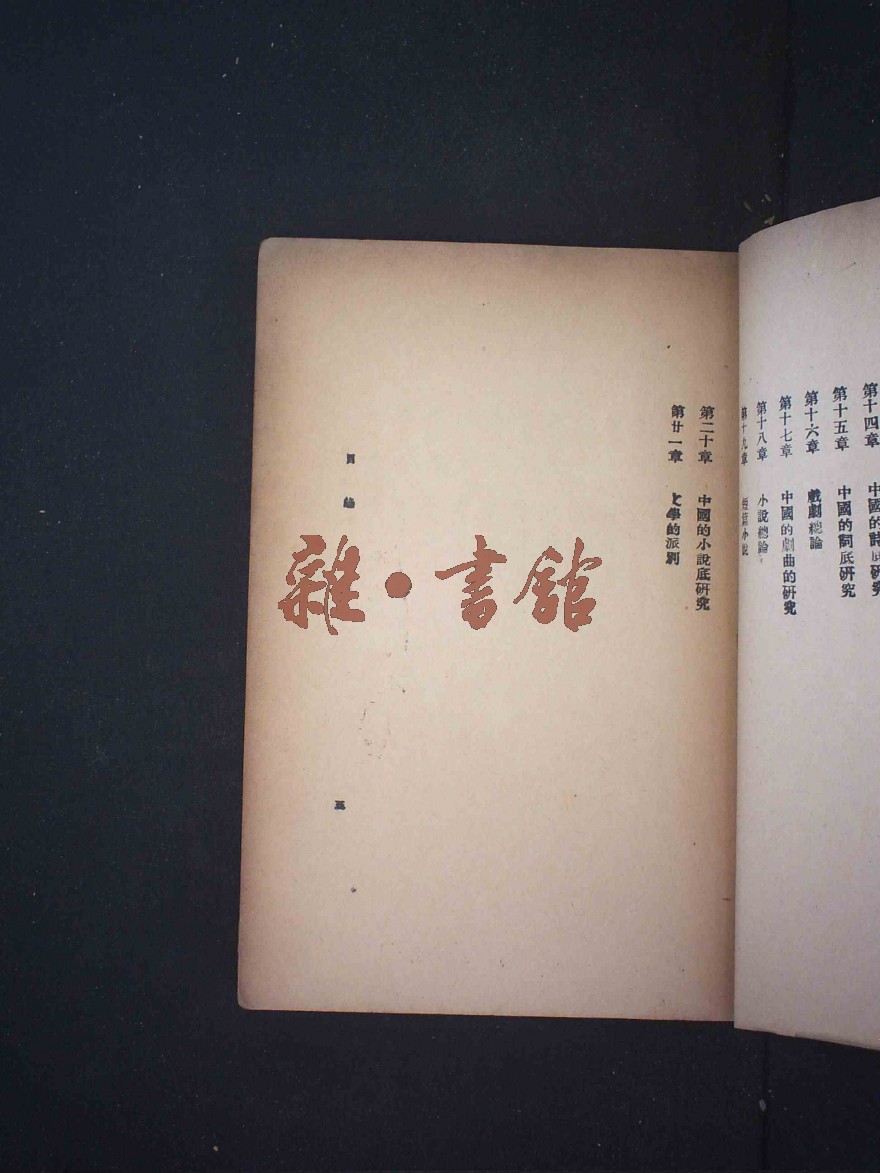 第十四章 中國的詩底研究
第十五章 中國的詞底研究
第十六章 戲劇總論
第十七章 中國的劇曲的研究
第十八章 小說總論
第十九章 短篇小說
第二十章 中國的小說底研究
第廿一章 文學的派別
目
三
雜·書館